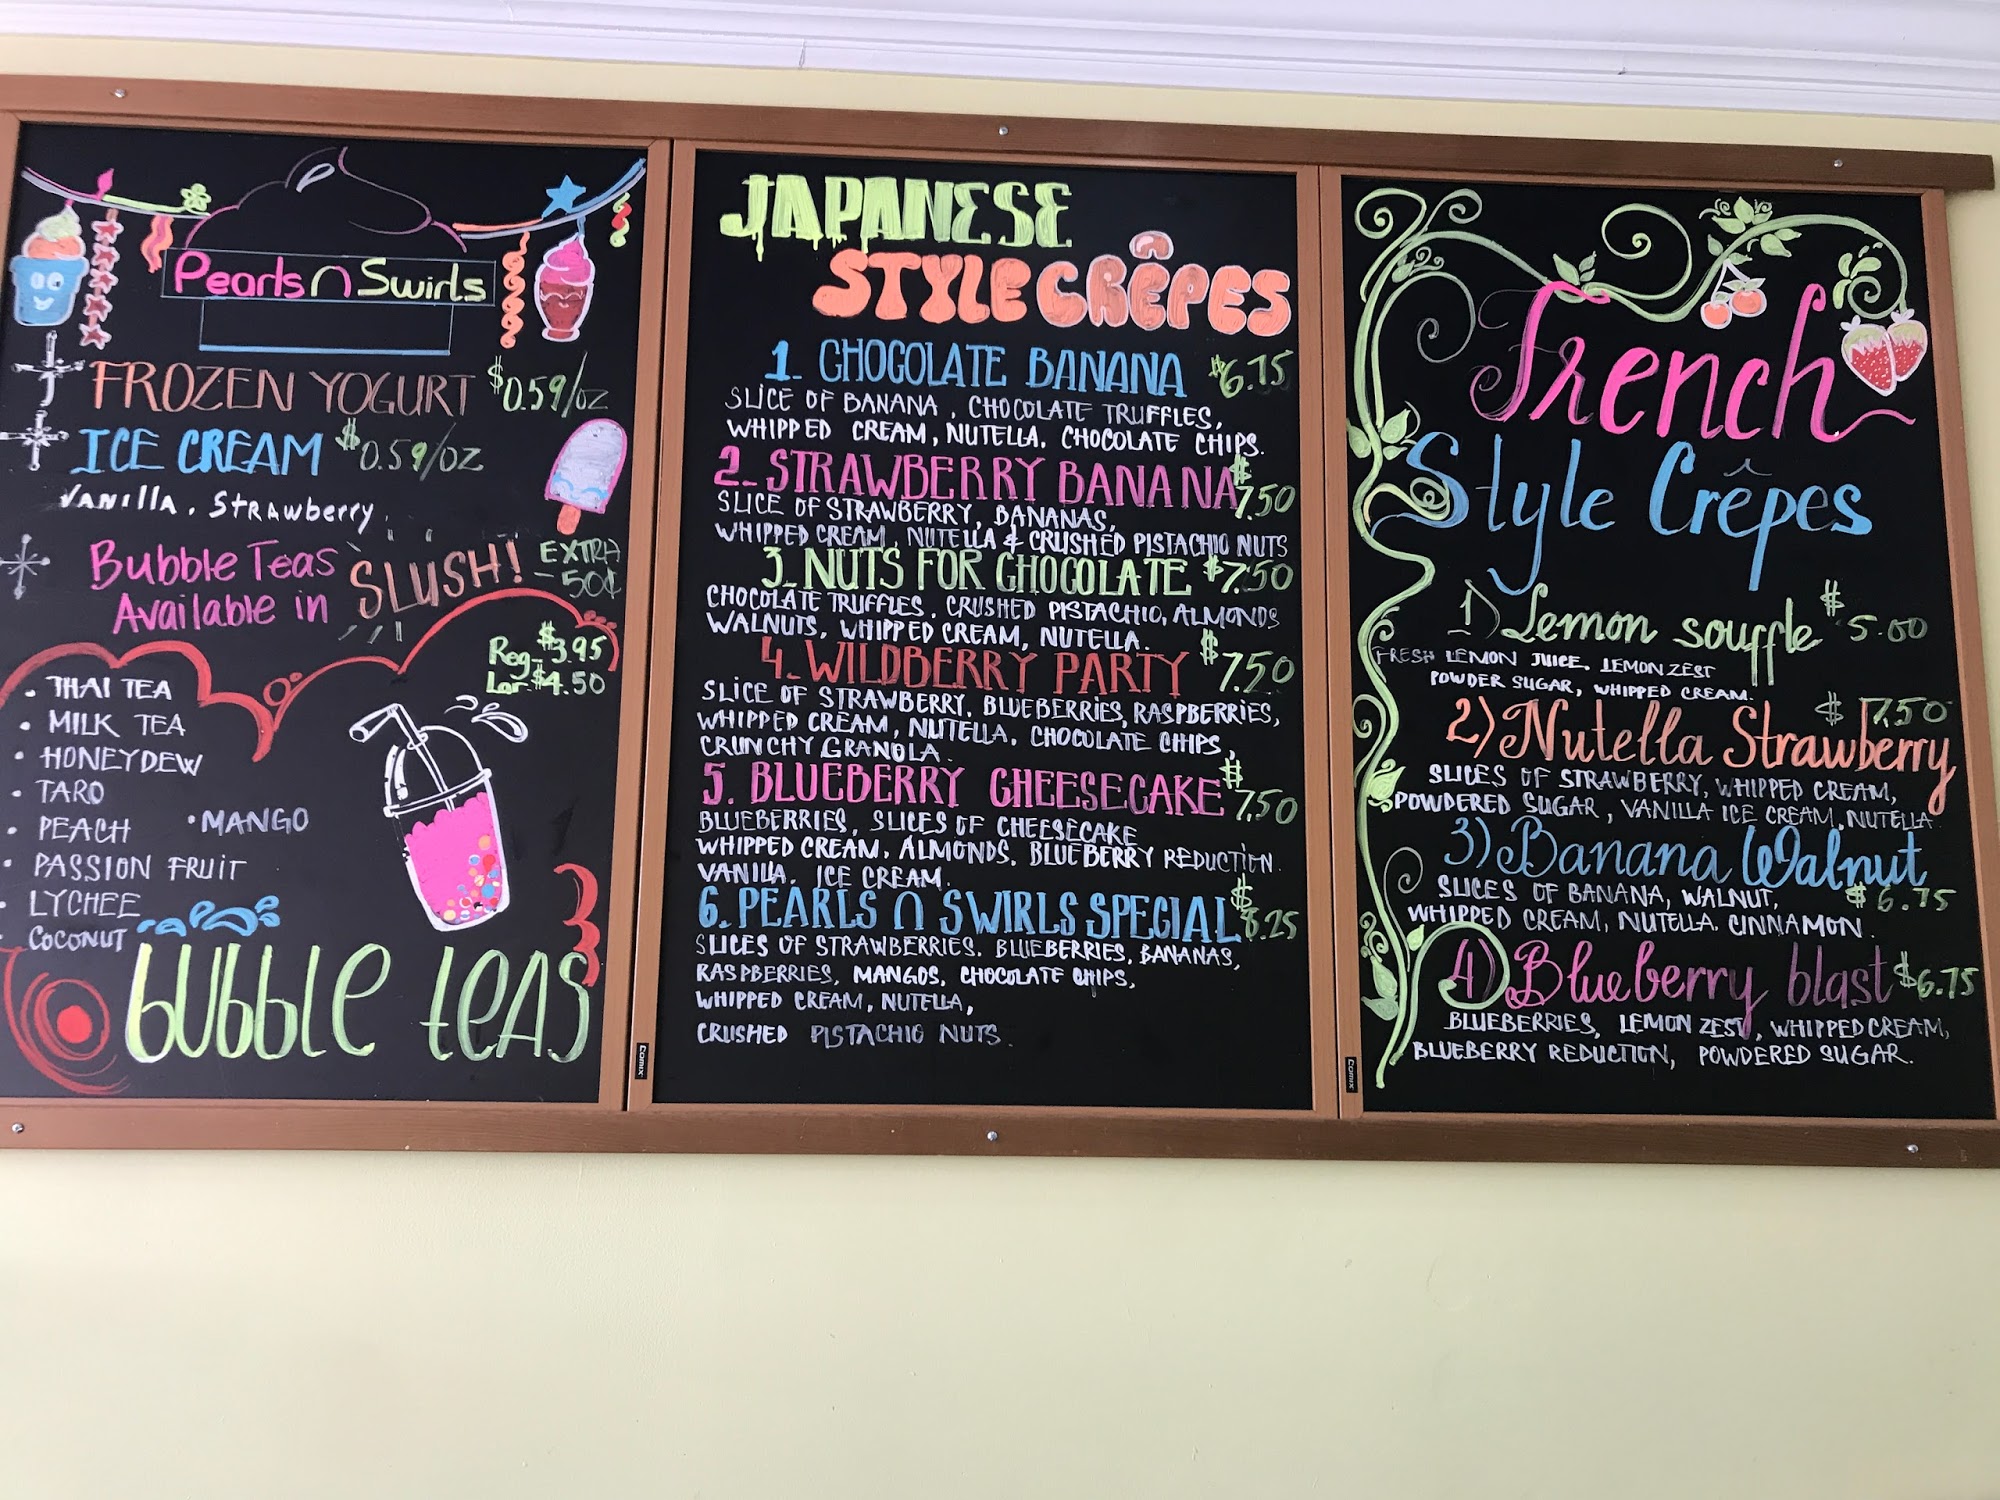 Pearls n Swirls
FROZEN YOGURT $0.59/oz
ICE CREAM $0.59/oz
Vanilla, Strawberry.
Bubble Teas
Available in SLUSH! EXTRA
- 50¢
Reg- $3.95
Lar- $4.50
• THAI TEA
• MILK TEA
• HONEYDEW
• TARO
• PEACH • MANGO
• PASSION FRUIT
• LYCHEE
• COCONUT
bubble teas
comix
JAPANESE
STYLE CRÊPES
1_ CHOCOLATE BANANA $6.75
SLICE OF BANANA, CHOCOLATE TRUFFLES,
WHIPPED CREAM, NUTELLA, CHOCOLATE CHIPS.
2_ STRAWBERRY BANANA $7.50
SLICE OF STRAWBERRY, BANANAS,
WHIPPED CREAM, NUTELLA & CRUSHED PISTACHIO NUTS
3_ NUTS FOR CHOCOLATE $7.50
CHOCOLATE TRUFFLES, CRUSHED PISTACHIO, ALMONDS
WALNUTS, WHIPPED CREAM, NUTELLA.
4. WILDBERRY PARTY $7.50
SLICE OF STRAWBERRY, BLUEBERRIES, RASPBERRIES,
WHIPPED CREAM, NUTELLA, CHOCOLATE CHIPS,
CRUNCHY GRANOLA.
5. BLUEBERRY CHEESECAKE $7.50
BLUEBERRIES, SLICES OF CHEESECAKE
WHIPPED CREAM, ALMONDS, BLUEBERRY REDUCTION.
VANILLA. ICE CREAM.
6. PEARLS n SWIRLS SPECIAL $8.25
SLICES OF STRAWBERRIES, BLUEBERRIES, BANANAS,
RASPBERRIES, MANGOS, CHOCOLATE CHIPS,
WHIPPED CREAM, NUTELLA,
CRUSHED PISTACHIO NUTS.
comix
French
Style Crêpes
1) Lemon souffle $5.00
FRESH LEMON JUICE, LEMON ZEST
POWDER SUGAR, WHIPPED CREAM.
2) Nutella Strawberry $7.50
SLICES OF STRAWBERRY, WHIPPED CREAM,
POWDERED SUGAR, VANILLA ICE CREAM, NUTELLA.
3) Banana Walnut $6.75
SLICES OF BANANA, WALNUT,
WHIPPED CREAM, NUTELLA, CINNAMON.
4) Blueberry blast $6.75
BLUEBERRIES, LEMON ZEST, WHIPPED CREAM,
BLUEBERRY REDUCTION, POWDERED SUGAR.